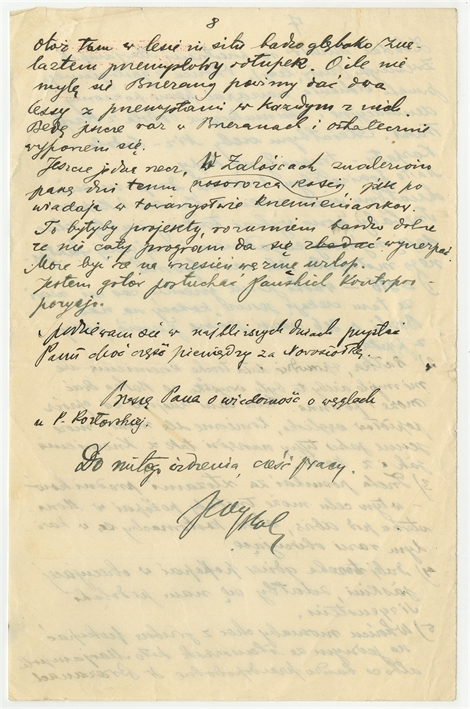 8
Otóż tam w lesie in situ bardzo głęboko zna-
lazłem przemysłowy odłupek. O ile nie
mylę się Brzeżany powinny dać dwa
lessy z przemysłami w każdym z nich.
Będę jeszcze raz w Brzeżanach i ostatecznie
wypowiem się.
Jeszcze jedna rzecz, W Załoścach znaleziono
parę dni temu nosorożca kości, jak po
wiadają w towarzystwie krzemieniaków.
To byłyby projekty, rozumiem bardzo dobrze
że nie cały program da się zbadać wyczerpać.
Może być że na wrzesień wezmę urlop.
Jestem gotów posłuchać Pańskich kontrpro-
pozycji.
Spodziewam się w najbliższych dniach przysłać
Panu choć część pieniędzy za Nowosiółkę.
Proszę Pana o wiadomość o węglach
u P. Kozłowskiej.
Do miłego widzenia, cześć pracy.